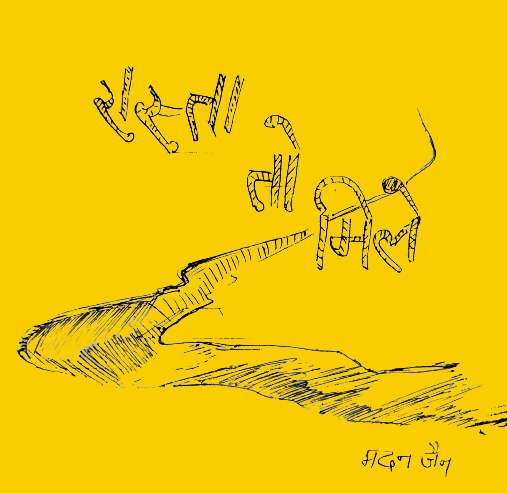 रास्ता
तो
मिले
मदन जैन